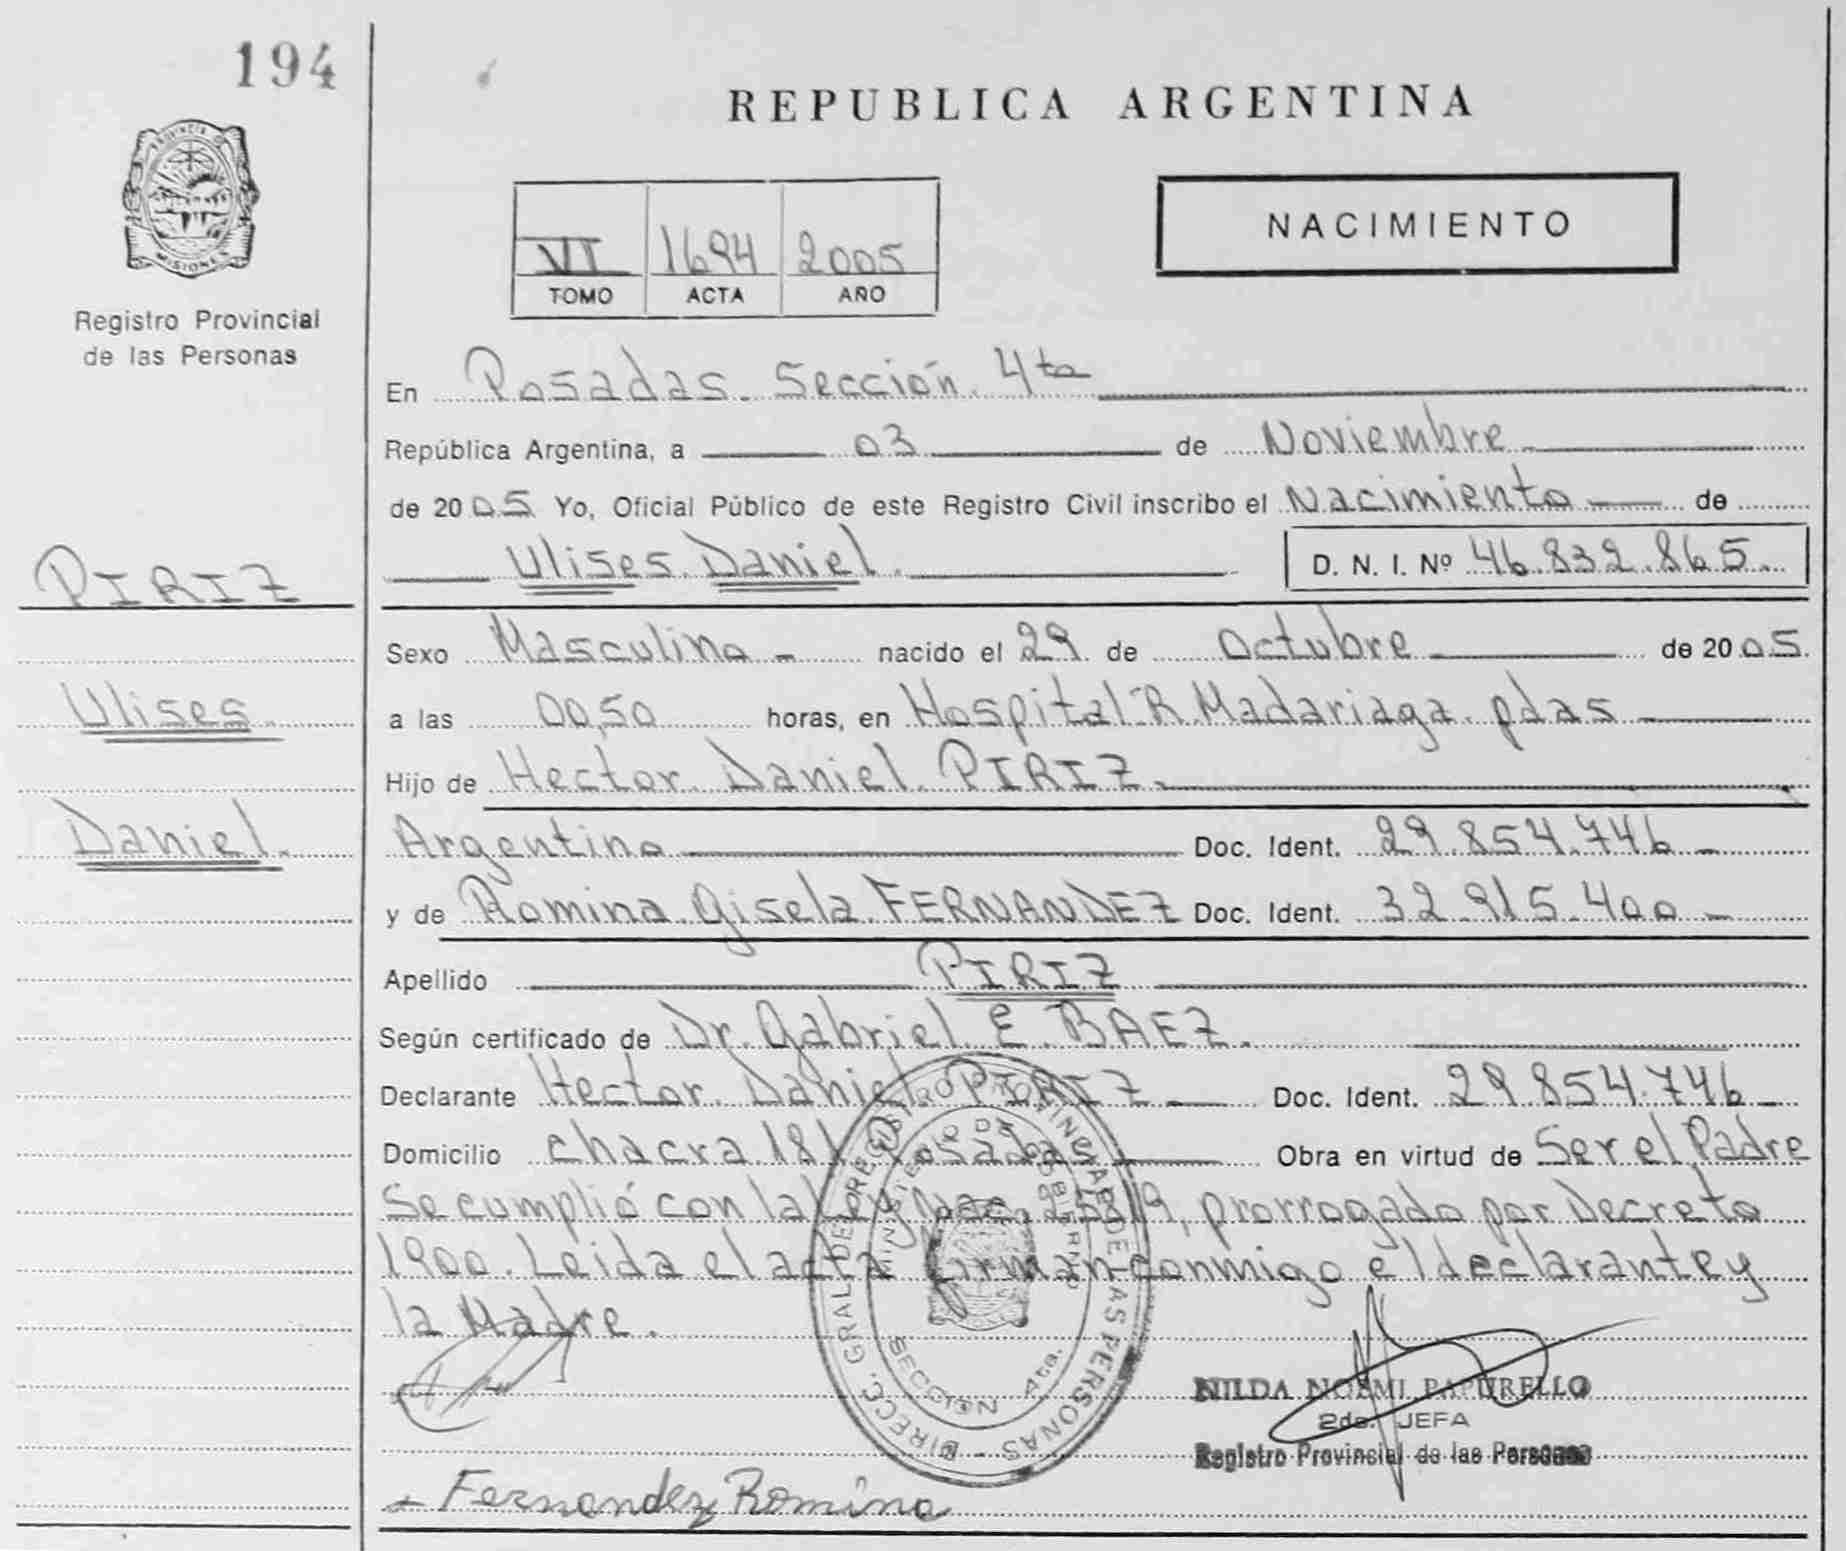 194
REPUBLICA ARGENTINA
PROVINCIA DE
MISIONES
Registro Provincial
de las Personas
VI 1694 2005
TOMO ACTA AÑO
NACIMIENTO
En Posadas. Sección. 4ta
República Argentina, a 03 de Noviembre
de 2005 Yo, Oficial Público de este Registro Civil inscribo el Nacimiento de
Ulises Daniel. D. N. I. Nº 46.832.865.
PIRIZ
Sexo Masculino - nacido el 29 de Octubre de 2005.
Ulises
a las 00,50 horas, en Hospital R. Madariaga. pdas
Hijo de Hector Daniel PIRIZ.
Daniel.
Argentino Doc. Ident. 29.854.746
y de Romina Gisela FERNANDEZ Doc. Ident. 32.915.400
Apellido PIRIZ
Según certificado de Dr. Gabriel E. BAEZ.
Declarante Hector Daniel PIRIZ Doc. Ident. 29.854.746
Domicilio chacra 181 Posadas Obra en virtud de Ser el Padre
Se cumplió con la Ley Nac. 25819, prorrogado por Decreto
1900. Leida el acta firman conmigo el declarante y
la Madre.
DIRECC. GRAL DEL REGISTRO PROVINCIAL DE LAS PERSONAS
MINISTERIO DE GOBIERNO
SECCION 4ta.
NILDA NOEMI PAPURELLO
2da. JEFA
Registro Provincial de las Personas
Fernandez Romina